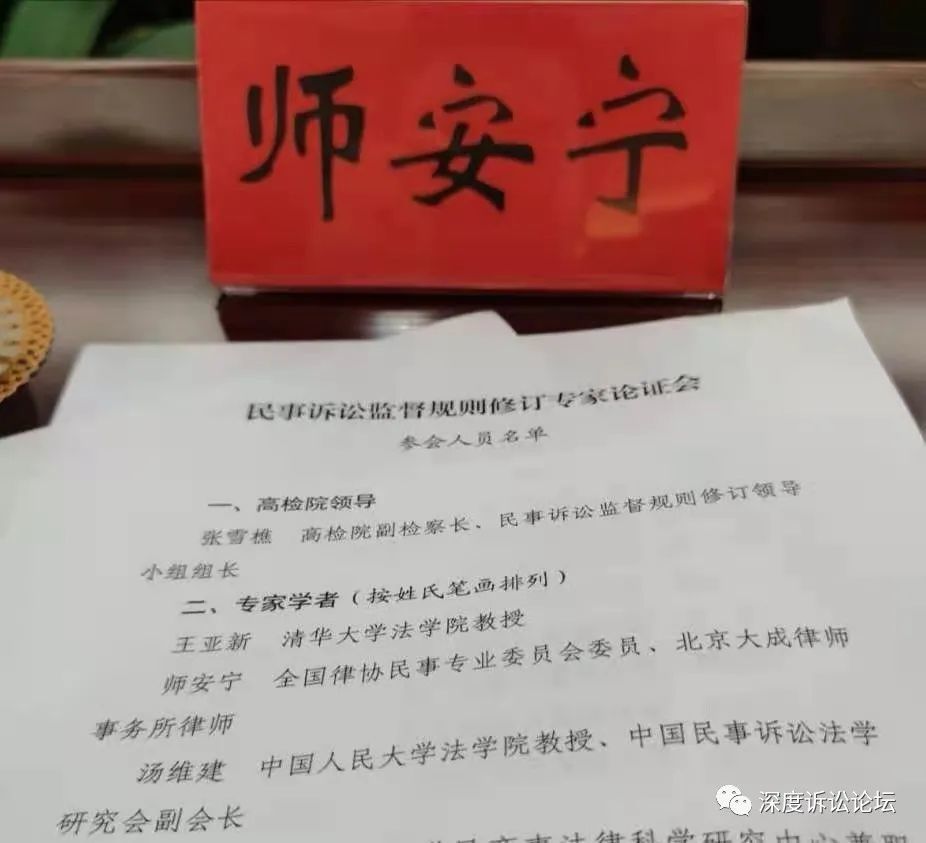 师安宁
民事诉讼监督规则修订专家论证会
参会人员名单
一、高检院领导
张雪樵 高检院副检察长、民事诉讼监督规则修订领导
小组组长
二、专家学者（按姓氏笔画排列）
王亚新 清华大学法学院教授
师安宁 全国律协民事专业委员会委员、北京大成律师
事务所律师
汤维建 中国人民大学法学院教授、中国民事诉讼法学
研究会副会长
商事法律科学研究中心兼职
深度诉讼论坛